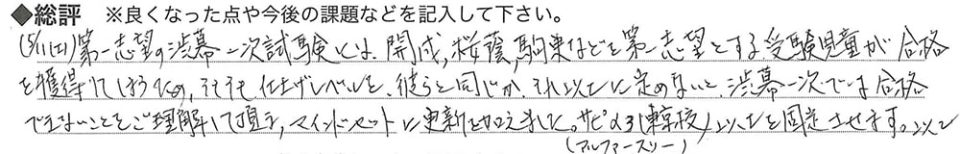 ◆総評 ※良くなった点や今後の課題などを記入して下さい。
(5/11(日))第一志望の渋幕一次試験とは、開成、桜蔭、駒東などを第一志望とする受験児童が合格
を獲得してしまうため、そもそも仕上げレベルを、彼らと同じか、それ以上に定めないと、渋幕一次では合格
できないことをご理解して頂き、マインドセットに更新を加えました。サピα3(東京校)以上を固定させます。以上
(アルファースリー)